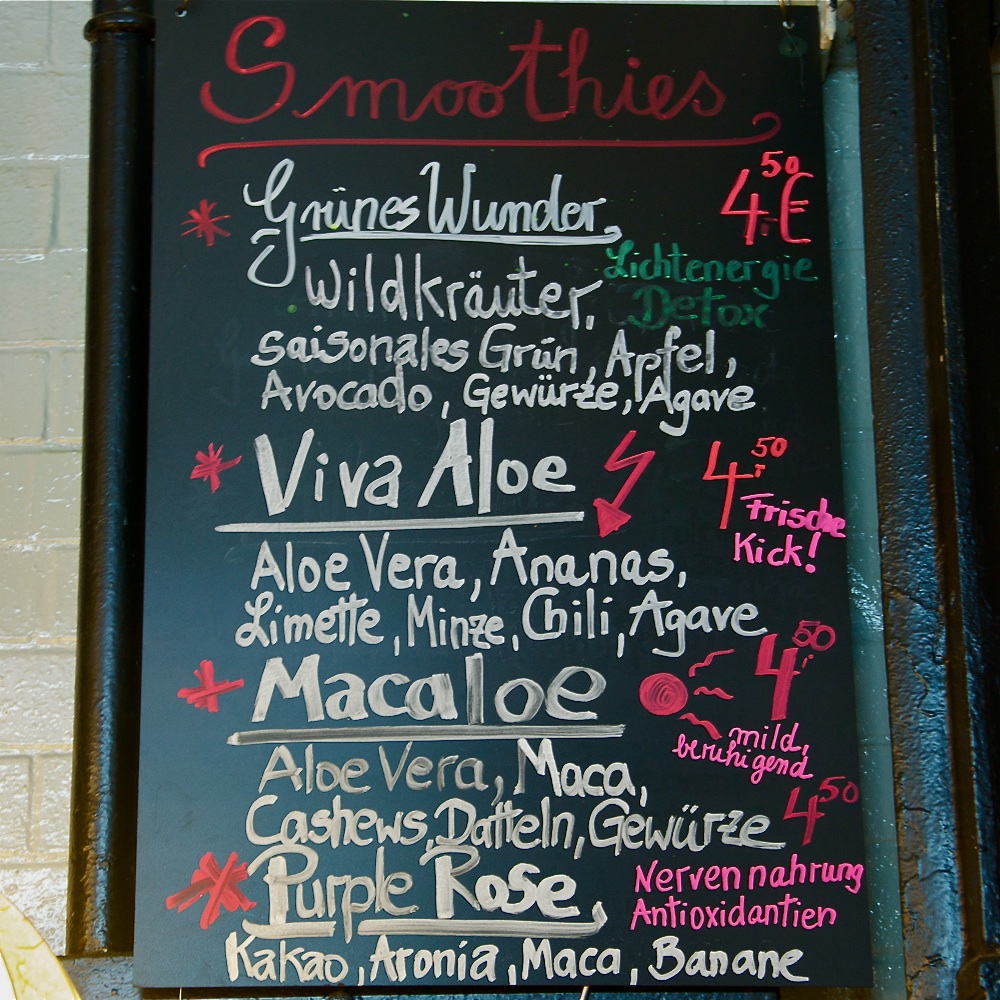 Smoothies
* Grünes Wunder, 4.50 €
Lichtenergie
Wildkräuter, Detox
saisonales Grün, Apfel,
Avocado, Gewürze, Agave
* Viva Aloe 4.50
Frische
Kick!
Aloe Vera, Ananas,
Limette, Minze, Chili, Agave
* Macaloe 4.50
mild,
beruhigend
Aloe Vera, Maca,
Cashews, Datteln, Gewürze 4 50
* Purple Rose, Nervennahrung
Antioxidantien
Kakao, Aronia, Maca, Banane